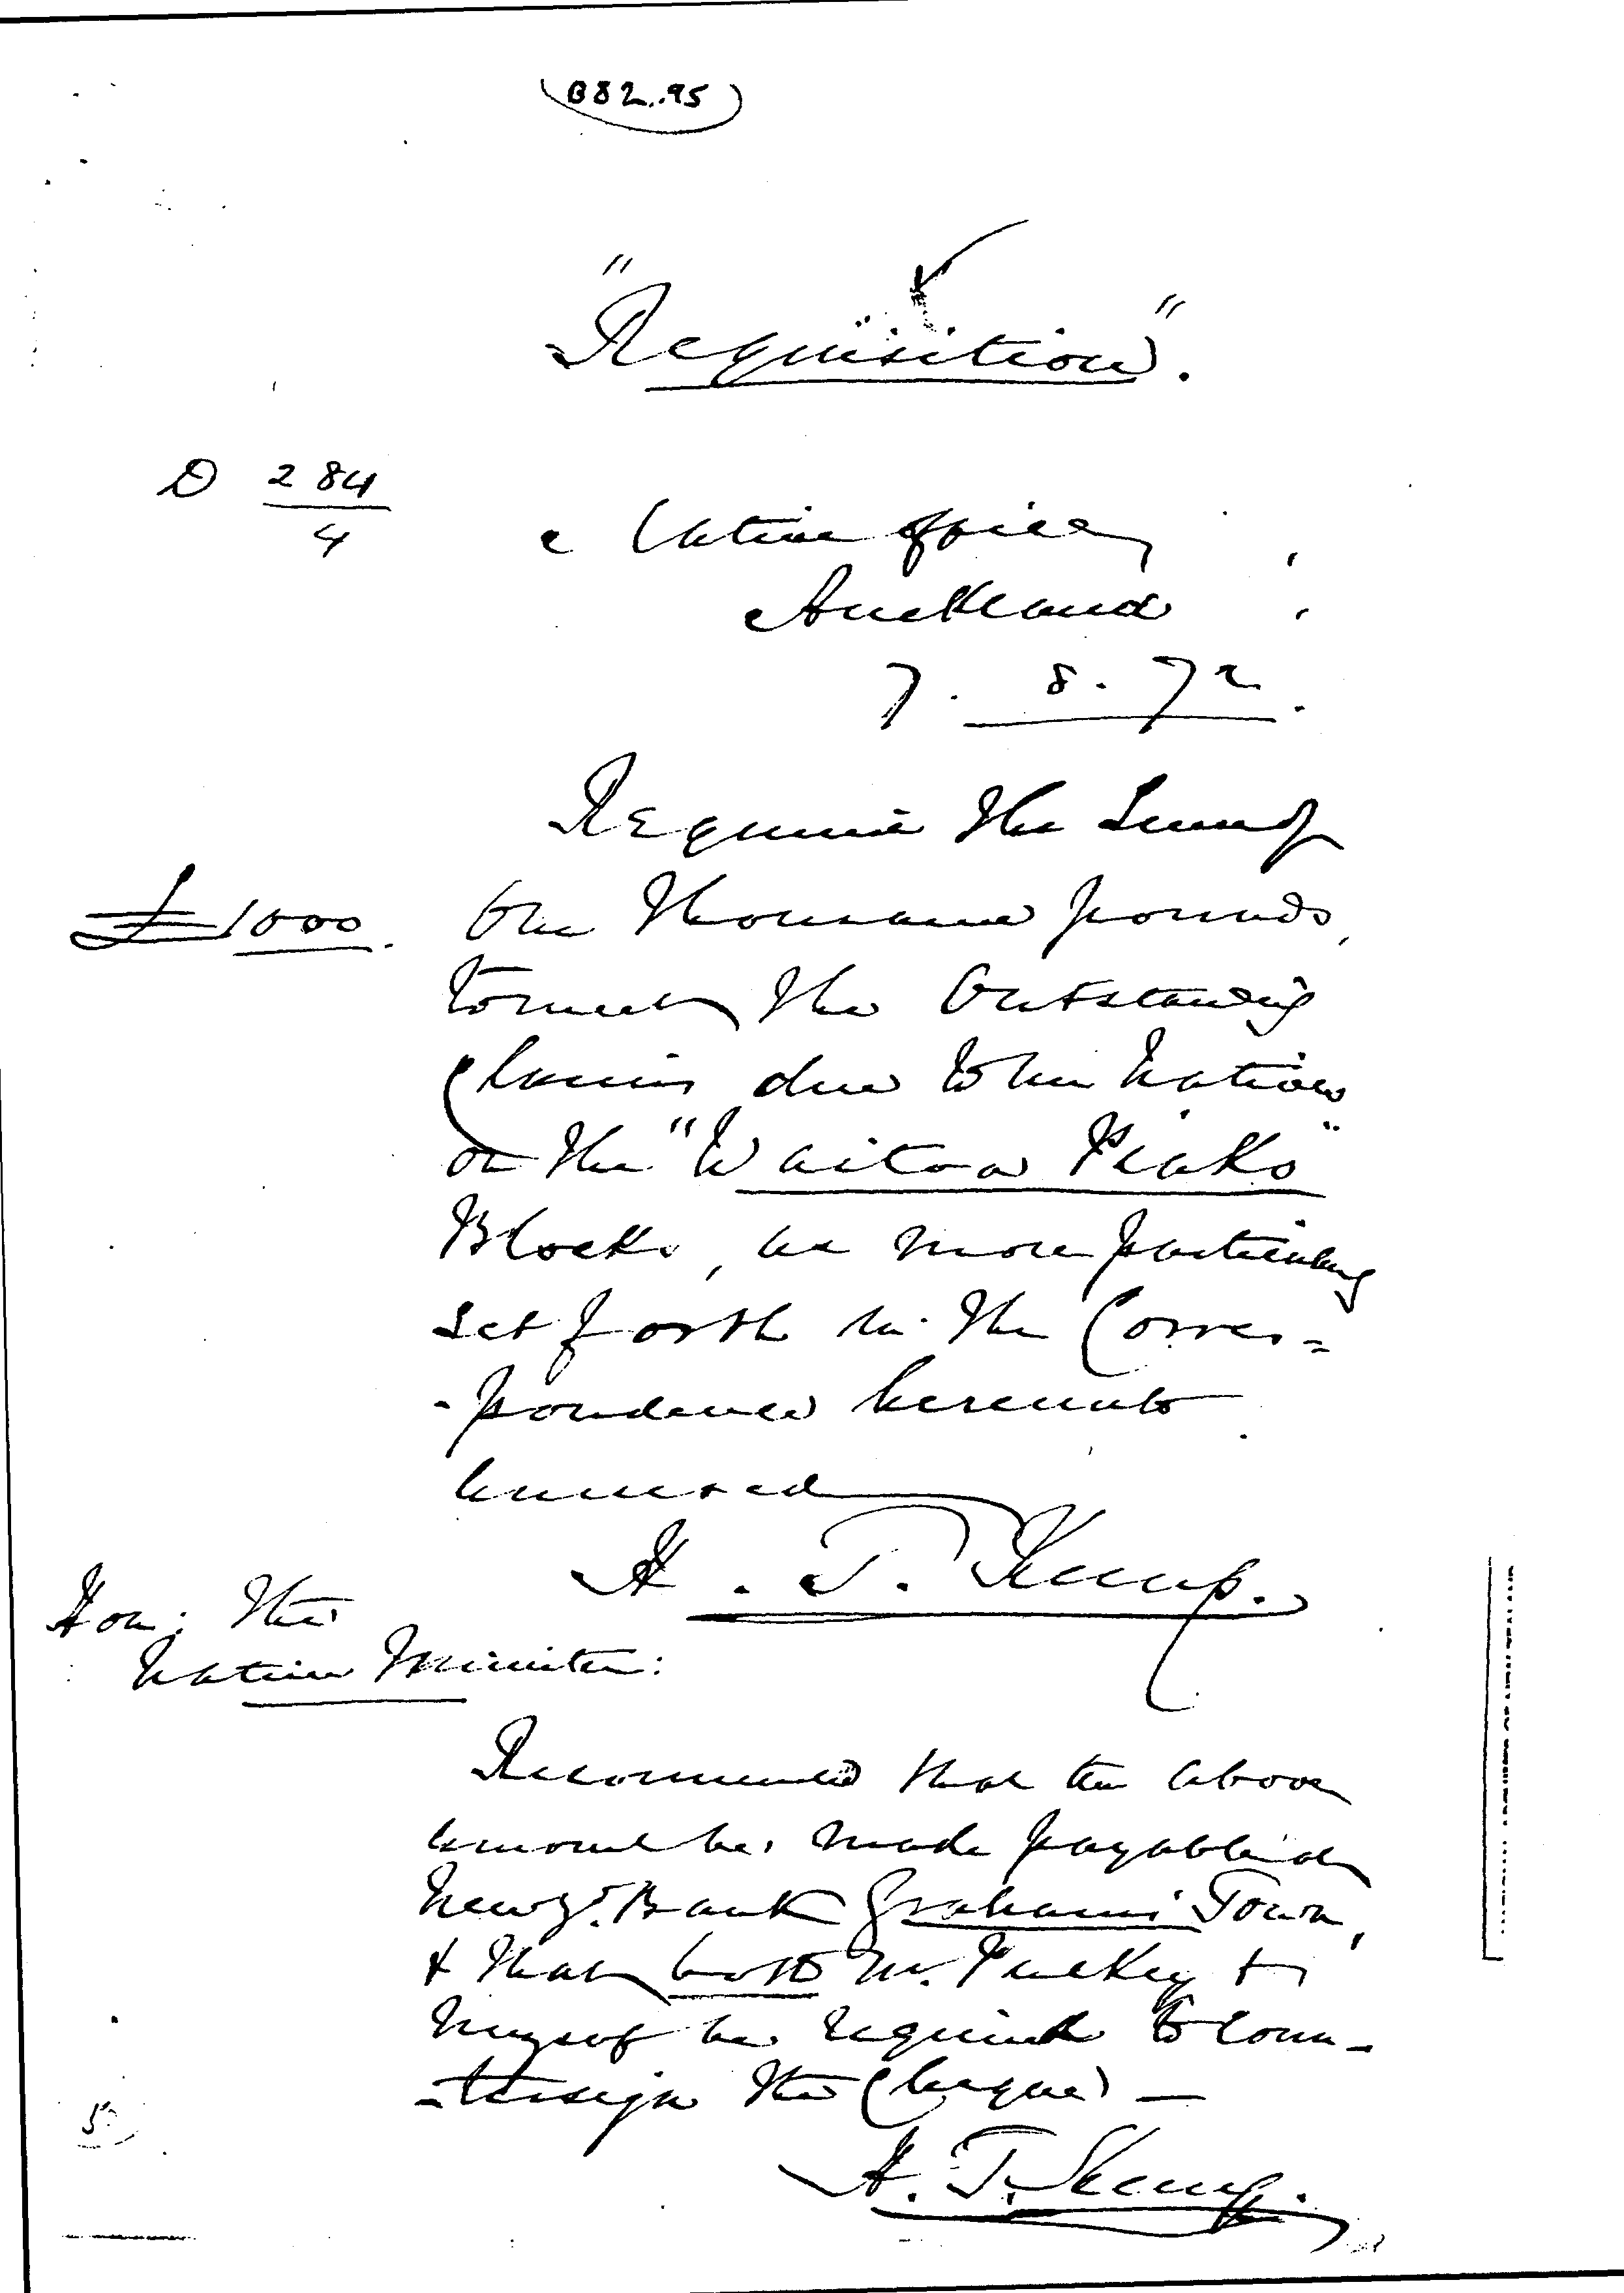 B82..95
"Requisition".
D 284/4
Native Office,
Auckland
7. 8. 72.
Require the Sum of
£1000. One thousand pounds,
to meet the Outstanding
Claims due to the Natives
on the "Waitoa Piako"
Blocks, as more particularly
set forth in the Corres=
-pondence hereunto
annexed
H. T. Kemp.
Hon: the
Native Minister:
Recommend that the above
amount be made payable at
New Zd. Bank Grahams Town,
& that both Mr. Puckey &
myself be required to coun-
-tersign the Cheque —
H. T. Kemp.